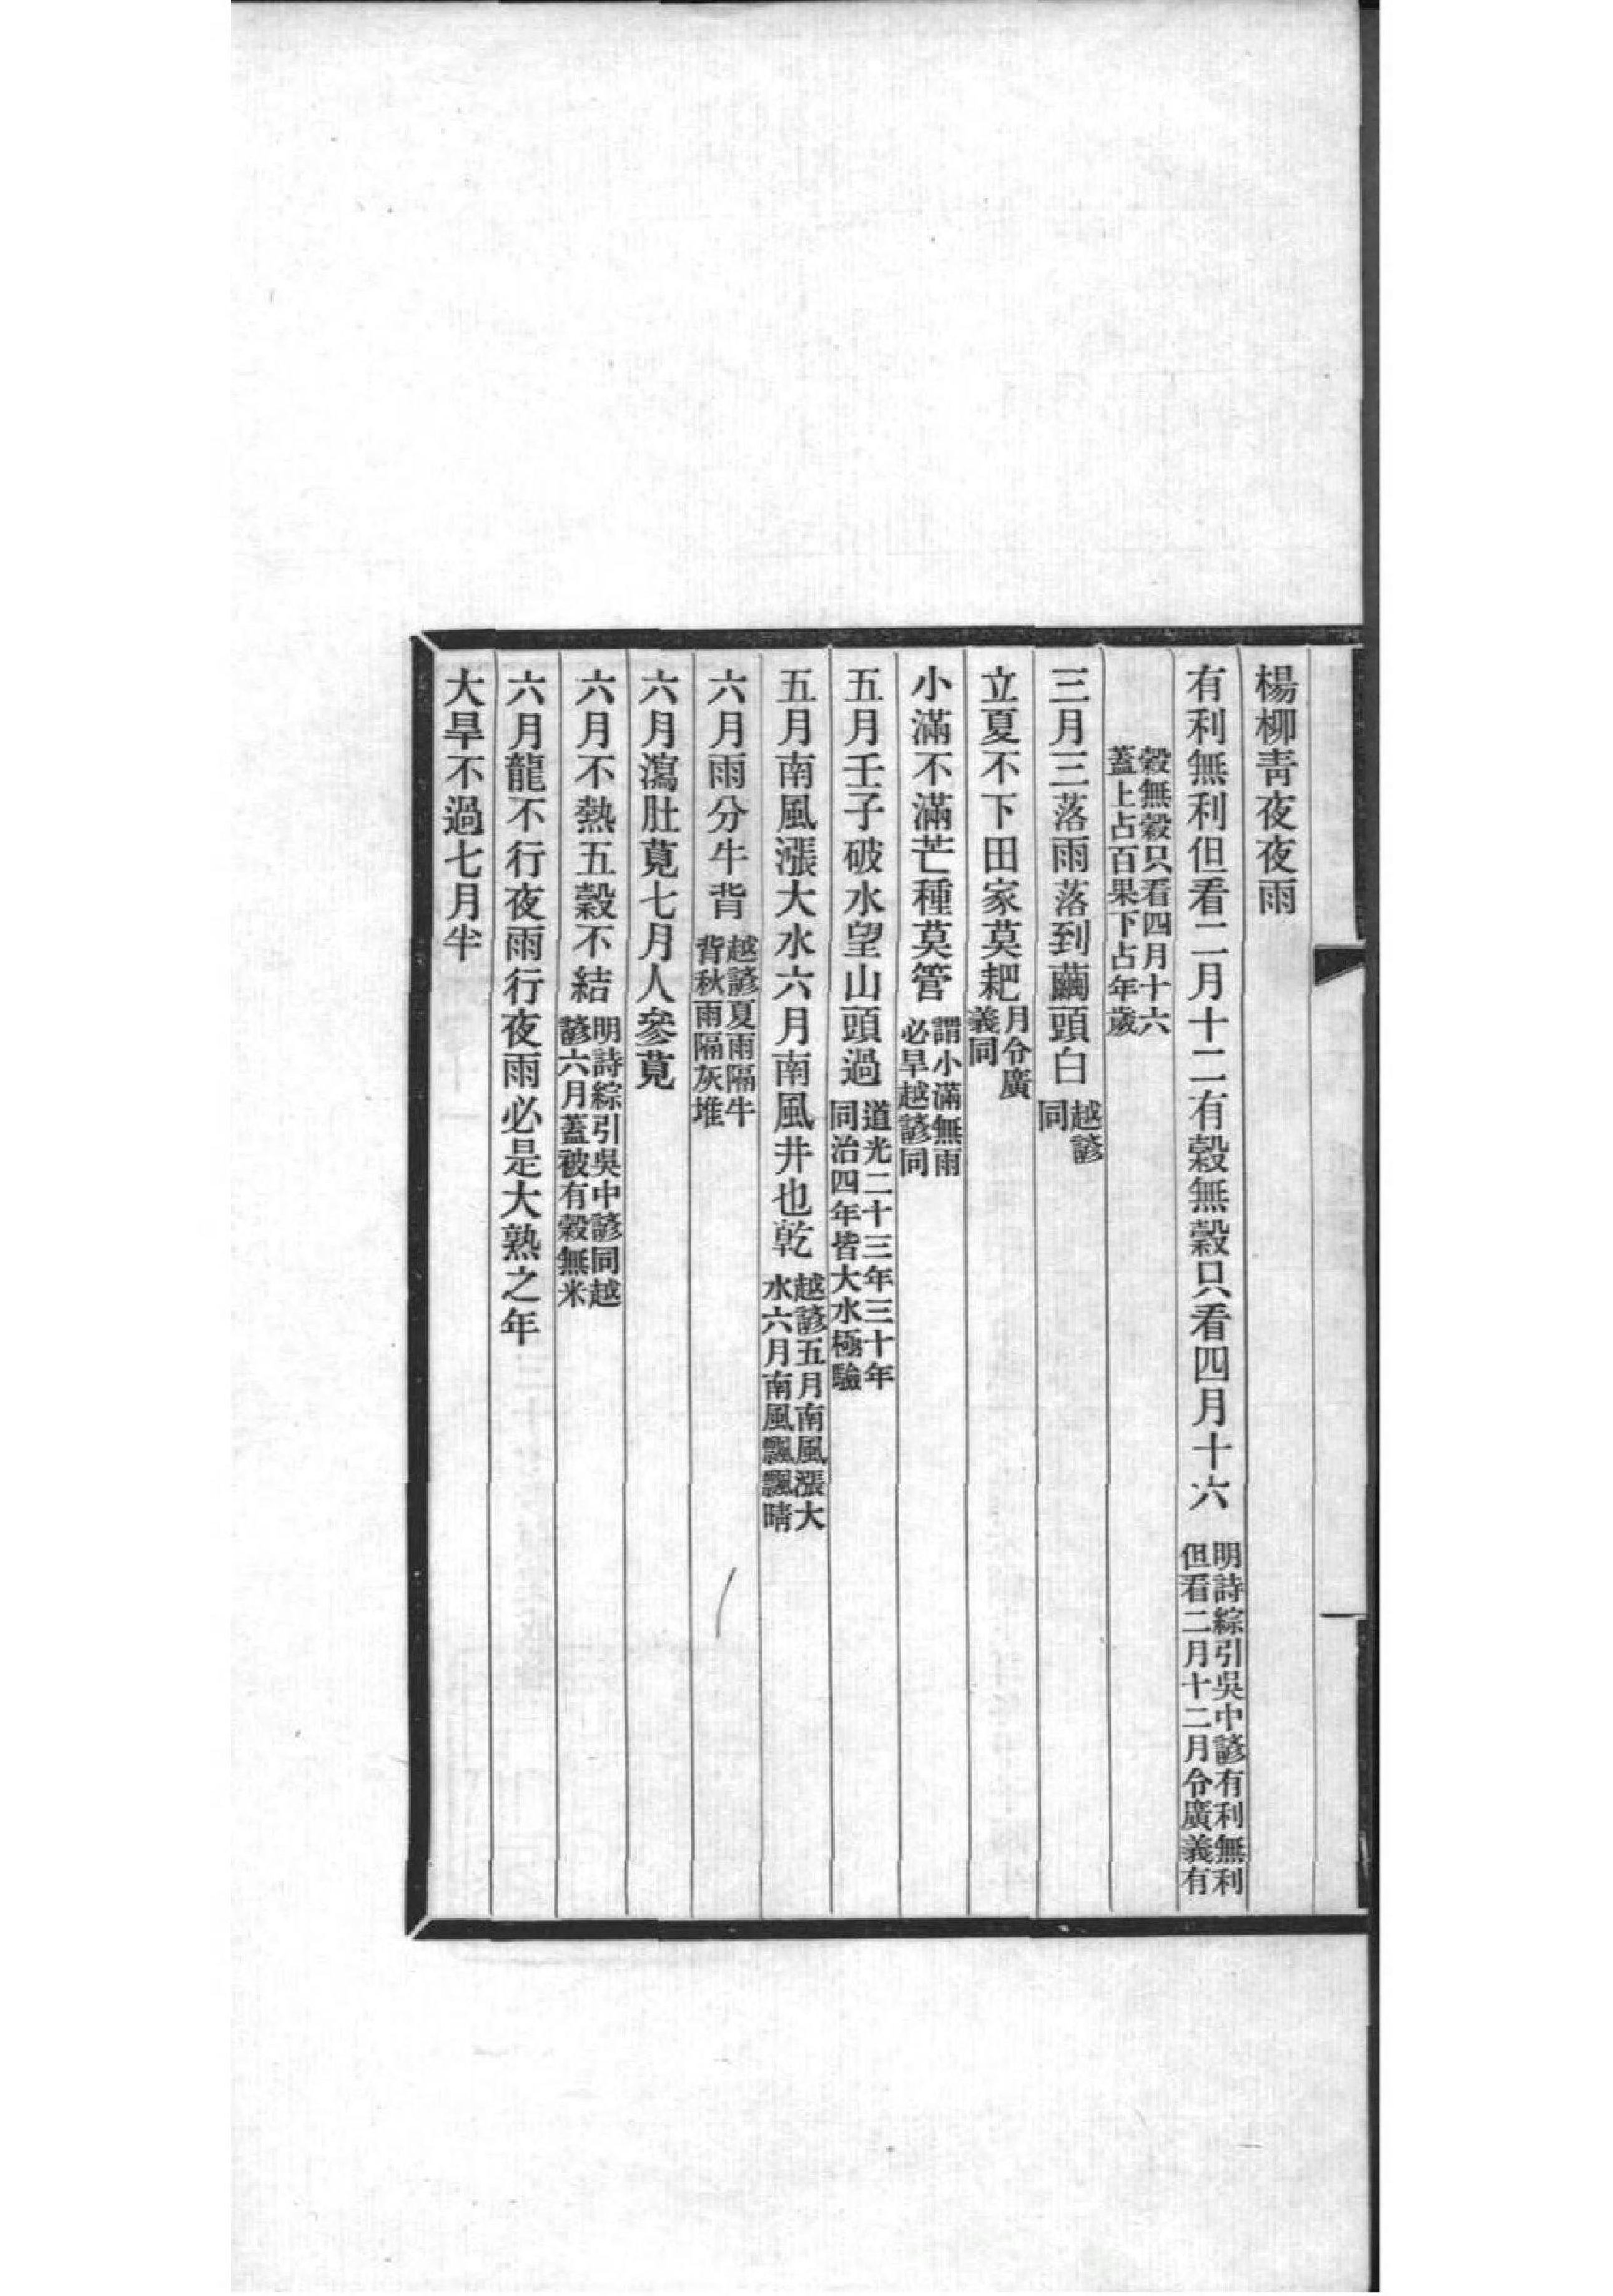 楊柳靑夜夜雨
有利無利但看二月十二有穀無穀只看四月十六明詩綜引吳中諺有利無利但看二月十二月令廣義有
穀無穀只看四月十六蓋上占百果下占年歲
三月三落雨落到繭頭白越諺同
立夏不下田家莫耙月令廣義同
小滿不滿芒種莫管謂小滿無雨必旱越諺同
五月壬子破水望山頭過道光二十三年三十年同治四年皆大水極驗
五月南風漲大水六月南風井也乾越諺五月南風漲大水六月南風飄飄晴
六月雨分牛背越諺夏雨隔牛背秋雨隔灰堆
六月瀉肚莧七月人參莧
六月不熱五穀不結明詩綜引吳中諺同越諺六月蓋被有穀無米
六月龍不行夜雨行夜雨必是大熟之年
大旱不過七月半